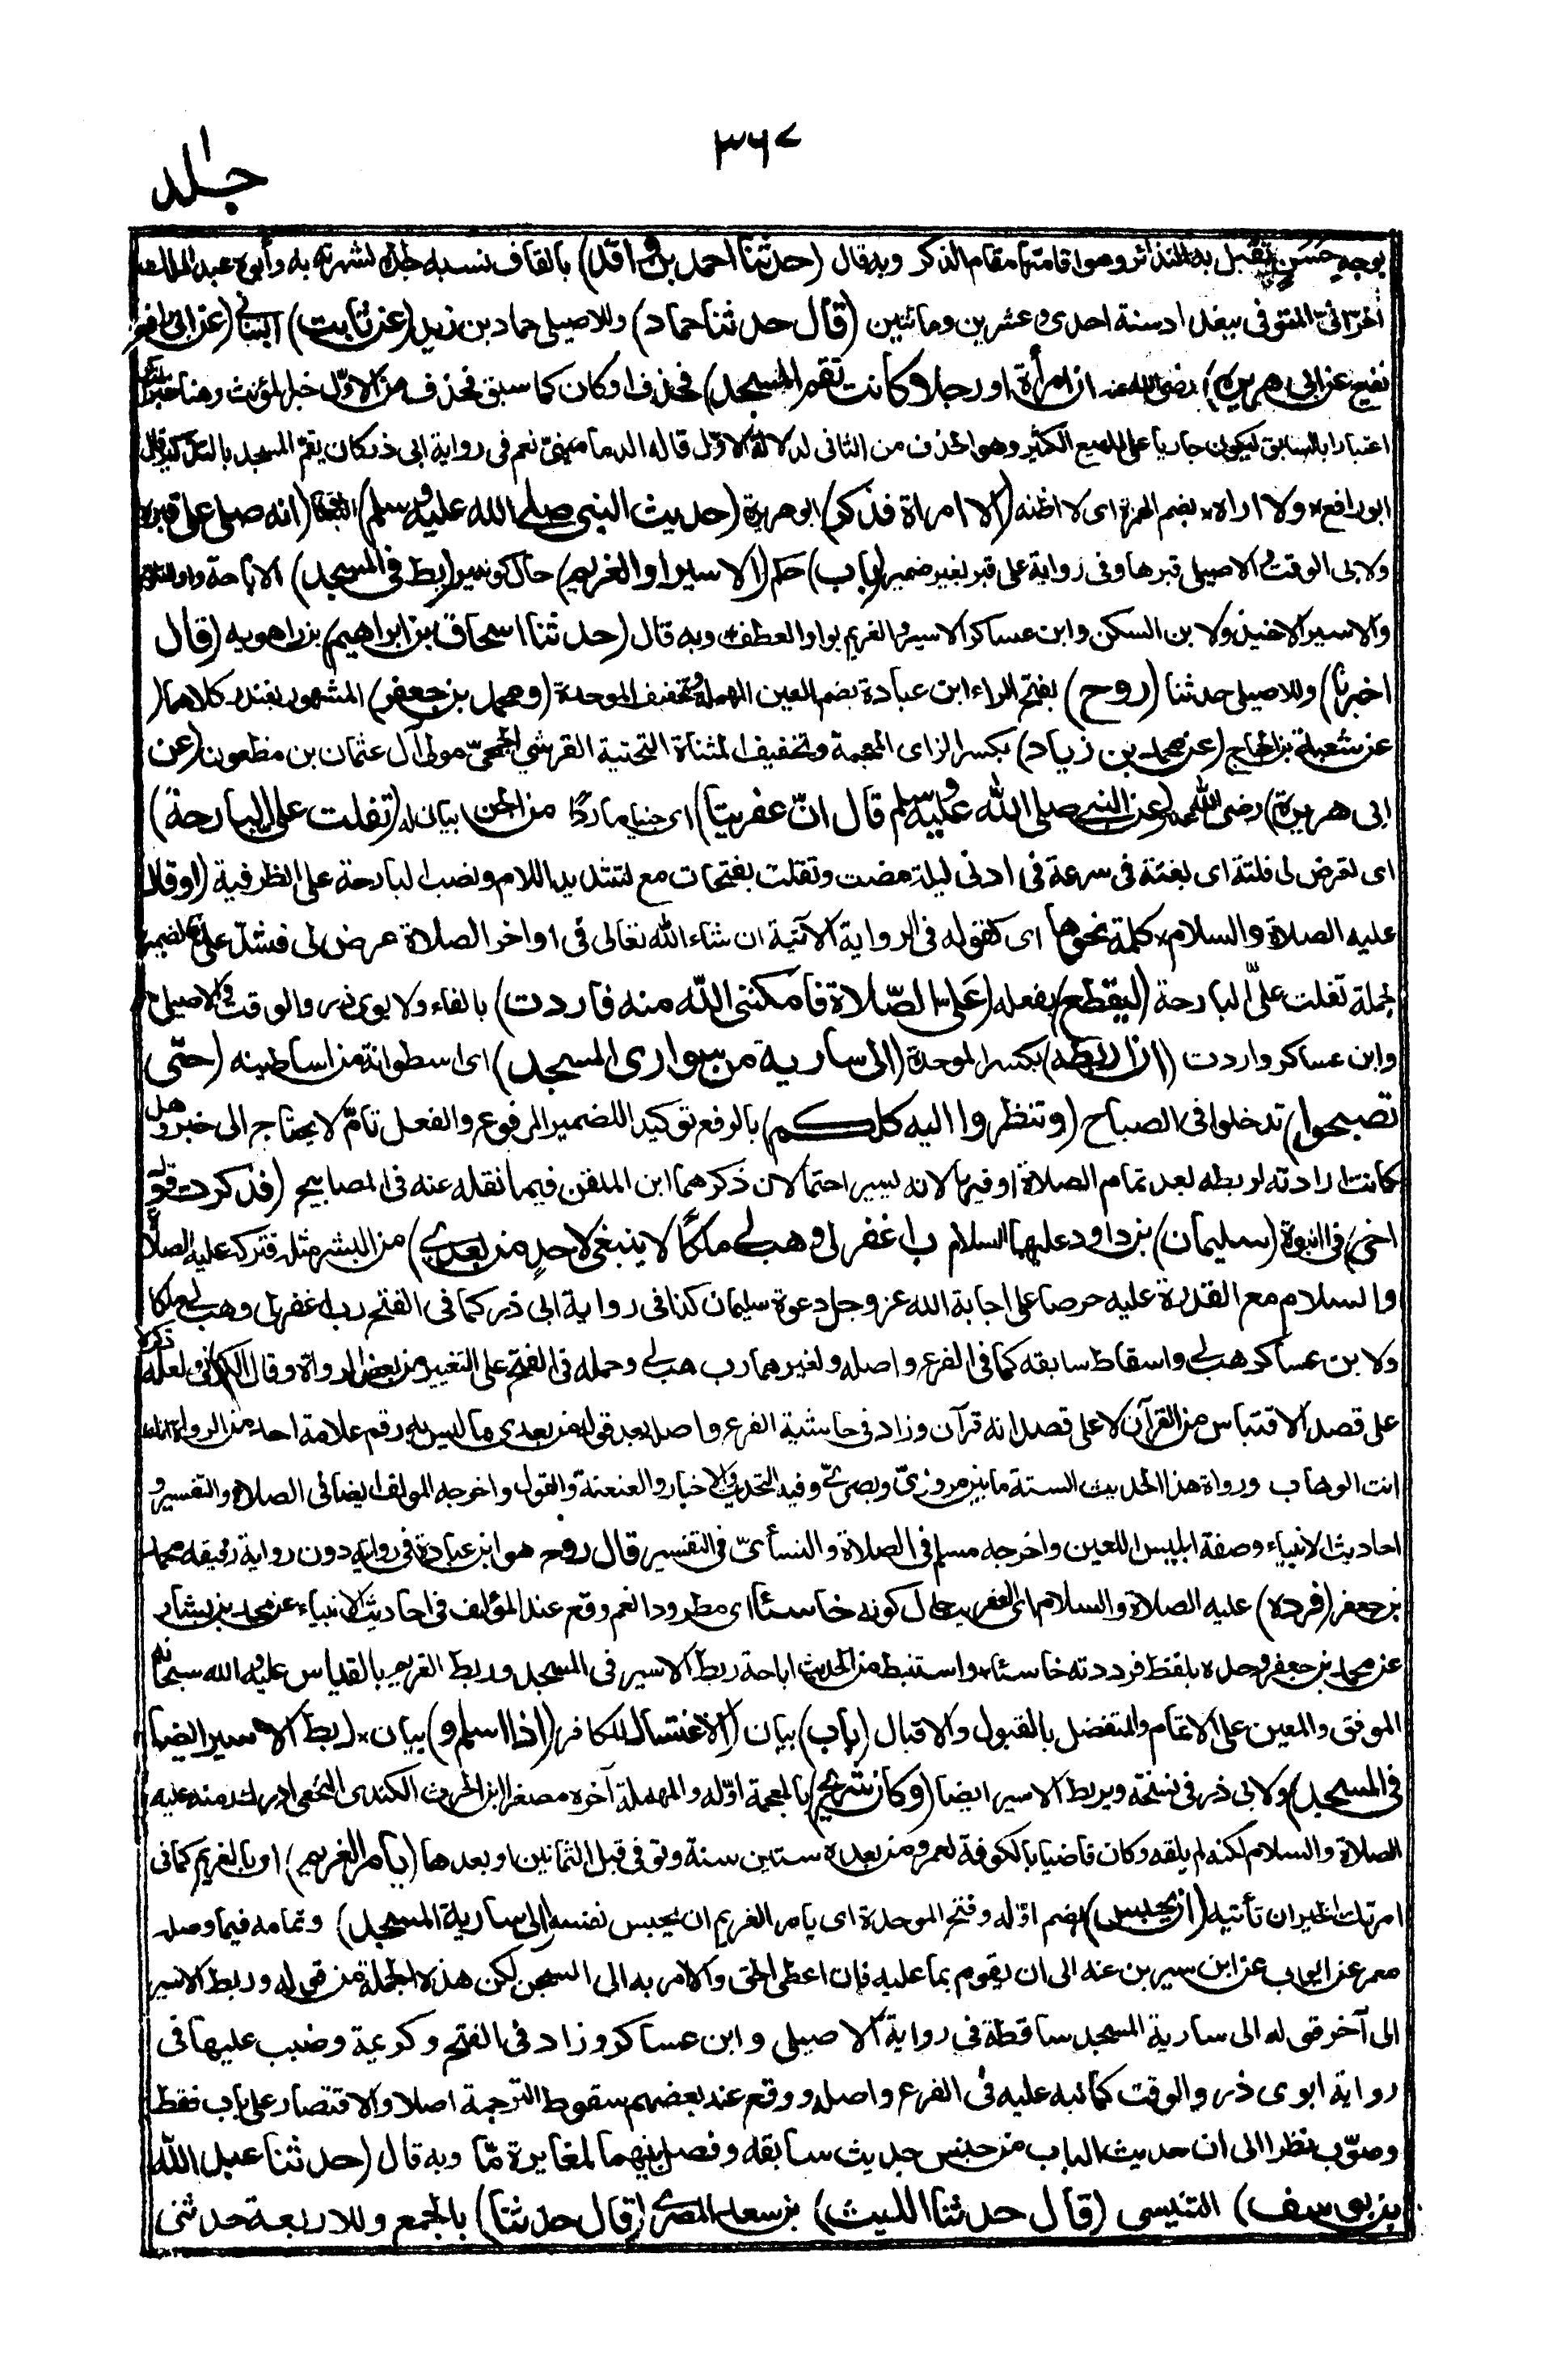 ٣٦٧
جلد
بوجه حسن تقبل به النذائر وهو اقامتها مقام الذكر وبه قال (حدثنا احمد بن واقد) بالقاف نسبه جده لشهرته به وأبوه عبد الملك
الحرّانيّ المتوفى ببغداد سنة احدى وعشرين ومائتين (قال حدثنا حماد) وللاصيلى حماد بن زيد (عن ثابت) البنانى (عن ابى رافع
نفيع عن ابى هريرة) رضى الله عنه ان امرأة او رجلا وكانت تقم المسجد) فحذف او كان كما سبق فحذف من الاوّل خبر المؤنث وهنا خبر
اعتبارا بالسابق ليكون جاريا على المهيع الكثير وهو الحذف من الثانى لدلالة الاوّل قاله الدمامينيّ نعم فى رواية ابى ذر كان يقمّ المسجد بالتذكير قال
ابو رافع ولا اراه بضم الهمزة اى لا اظنه (الا امراة فذكر) ابو هريرة (حديث النبى صلى الله عليه وسلم) (انه صلى على قبره
ولابى الوقت والاصيلى قبرها وفى رواية على قبر بغير ضمير (باب) حكم (الاسير او الغريم) حال كونه (يربط فى المسجد) الاباحة واو للتنويع
والاسير الاخيذ ولابن السكن وابن عساكر الاسير والغريم بواو العطف وبه قال (حدثنا اسحاق بن ابراهيم) بن راهويه (قال
اخبرنا) وللاصيلى حدثنا (روح) بفتح الراء ابن عبادة بضم العين المهملة وتخفيف الموحدة (ومحمد بن جعفر) المشهور بغندر كلاهما (
عن شعبة) بن الحجاج (عن محمد بن زياد) بكسر الزاى المعجمة وتخفيف المثناة التحتية القرشي الجمحيّ مولى آل عثمان بن مظعون (عن
ابى هريرة) رضى الله عنه (عن النبى صلى الله عليه وسلم قال انّ عفريتا) اى جنيا ماردًا من الجن بيان له (تفلت علىّ البارحة)
اى تعرض لى فلتة اى بغتة فى سرعة فى ادنى ليلة مضت وتفلت بفتحات مع تشديد اللام ونصب البارحة على الظرفية (او قال
عليه الصلاة والسلام كلمة نحوها اى كقوله فى الرواية الآتية ان شاء الله تعالى فى اواخر الصلاة عرض لى فشدّ علىّ فالضمير
لجملة تفلت علىّ البارحة (ليقطع) بفعله (علىّ الصّلاة فامكننى اللّه منه فاردت) بالفاء ولابوى ذر والوقت والاصيلى
وابن عساكر واردت (ان اربطه) بكسر الموحدة (الى سارية من سوارى المسجد) اى اسطوانة من اساطينه (حتّى
تصبحوا) تدخلوا فى الصباح (وتنظروا اليه كلكم) بالرفع توكيدا للضمير المرفوع والفعل تامّ لا يحتاج الى خبر وهل
كانت ارادته لربطه بعد تمام الصلاة او فيها لانه يسير احتمالان ذكرهما ابن الملقن فيما نقله عنه فى المصابيح (فذكرت قول
اخى) فى النبوة (سليمان) بن داود عليهما السلام رب اغفر لى وهب لى ملكًا لا ينبغى لاحدٍ من بعدى) من البشر مثله فتركه عليه الصلاة
والسلام مع القدرة عليه حرصا على اجابة الله عز وجل دعوة سليمان كذا فى رواية ابى ذر كما فى الفتح رب اغفر لى وهب لى ملكا
ولابن عساكر هب لى واسقاط سابقه كما فى الفرع واصله ولغيرهما رب هب لى وحمله فى الفتح على التغيير من بعض الرواة وقال الكرمانى ولعله ذكره
على قصد الاقتباس من القرآن لا على قصد انه قرآن وزاد فى حاشية الفرع واصله بعد قوله من بعدى ما ليس به رقم علامة احد من الرواة انك
انت الوهاب ورواة هذا الحديث الستة ما بين مروزىّ وبصرىّ وفيه التحديث والاخبار والعنعنة والقول واخرجه المولف ايضا فى الصلاة والتفسير و
احاديث الانبياء وصفة ابليس اللعين واخرجه مسلم فى الصلاة والنسأىّ فى التفسير قال روح هو ابن عبادة فى روايته دون رواية رفيقه محمد
بن جعفر (فرده) عليه الصلاة والسلام اى العفريت حال كونه خاسئا اى مطرودا نعم وقع عند المؤلف فى احاديث الانبياء عن محمد بن بشار
عن محمد بن جعفر وحده بلفظ فرددته خاسئا واستنبط من الحديث اباحة ربط الاسير فى المسجد وربط الغريم بالقياس عليه والله سبحانه
الموفق والمعين على الاتمام والمتفضل بالقبول والاقبال (باب) بيان (الاغتسال للكافر (اذا اسلم و) بيان ربط الاسير ايضا
فى المسجد) ولابى ذر فى نسخة ويربط الاسير ايضا (وكان شريح) بالمعجمة اوّله والمهملة آخره مصغرا ابن الحرث الكندى النخعى ادرك زمنه عليه
الصلاة والسلام لكنه لم يلقه وكان قاضيا بالكوفة لعمر ومن بعده ستين سنة وتوفى قبل الثمانين او بعدها (يامر الغريم) او بالغريم كما فى
امرتك الخير ان تأتيه (ان يحبس) بضم اوّله وفتح الموحدة اى يامر الغريم ان يحبس نفسه (الى سارية المسجد) وتمامه فيما وصله
معمر عن ايوب عن ابن سيرين عنه الى ان يقوم بما عليه فان اعطى الحق والا مر به الى السجن لكن هذه الجملة من قوله وربط الاسير
الى آخر قوله الى سارية المسجد ساقطة فى رواية الاصيلى وابن عساكر وزاد فى الفتح وكريمة وضبب عليها فى
رواية ابوى ذر والوقت كما نبه عليه فى الفرع واصله ووقع عند بعضهم سقوط الترجمة اصلا والاقتصار على باب فقط
وصوّب نظرا الى ان حديث الباب من جنس حديث سابقه وفصل بينهما لمغايرة مّا وبه قال (حدثنا عبد الله
بن يوسف) التنيسى (قال حدثنا الليث) بن سعد المصرى (قال حدثنا) بالجمع وللاربعة حدثنى